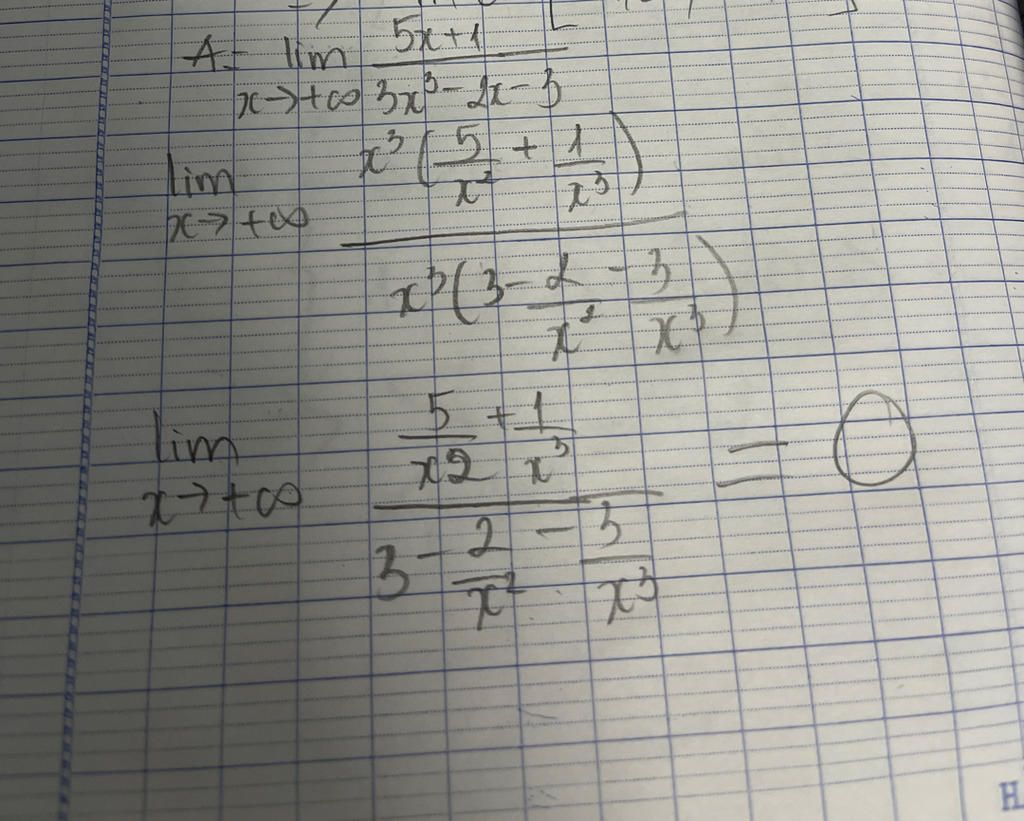 A = lim x→+∞ (5x+1)/(3x³-2x-3)
lim x→+∞ x³(5/x² + 1/x³)/x³(3 - 2/x² - 3/x³)
lim x→+∞ (5/x2 + 1/x³)/(3 - 2/x² - 3/x³) = 0
H